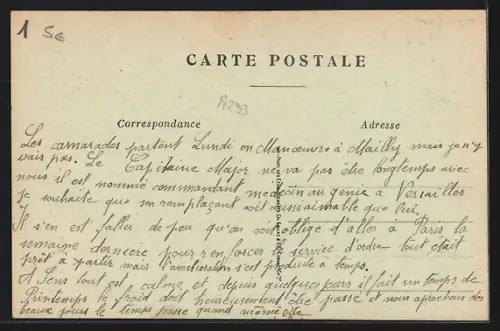 1 5€
CARTE POSTALE
A293
Correspondance Adresse
Les camarades partent Lundi en Manœuvre à Mailly mais je n'y
vais pas. Le Capitaine Major ne va pas être longtemps avec
nous il est nommé commandant medecin au genie à Versailles
je souhaite que son remplaçant soit aussi aimable que lui.
Il s'en est faller de peu qu'on soit obligé d'aller à Paris la
semaine derniere pour renforcer le service d'ordre tout était
prêt à partir mais l'amélioration s'est produite à temps.
A Sens tout est calme et depuis quelques jours il fait un temps de
Printemps le froid doit heureusement être passé et nous aprochons des
beaux jours le temps passe quand même vite